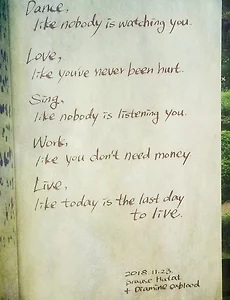 Dance,
like nobody is watching you.
Love,
like you've never been hurt.
Sing,
like nobody is listening you.
Work,
like you don't need money
Live,
like today is the last day
to live.
2018.11.23.
+ Diamine Oxblood